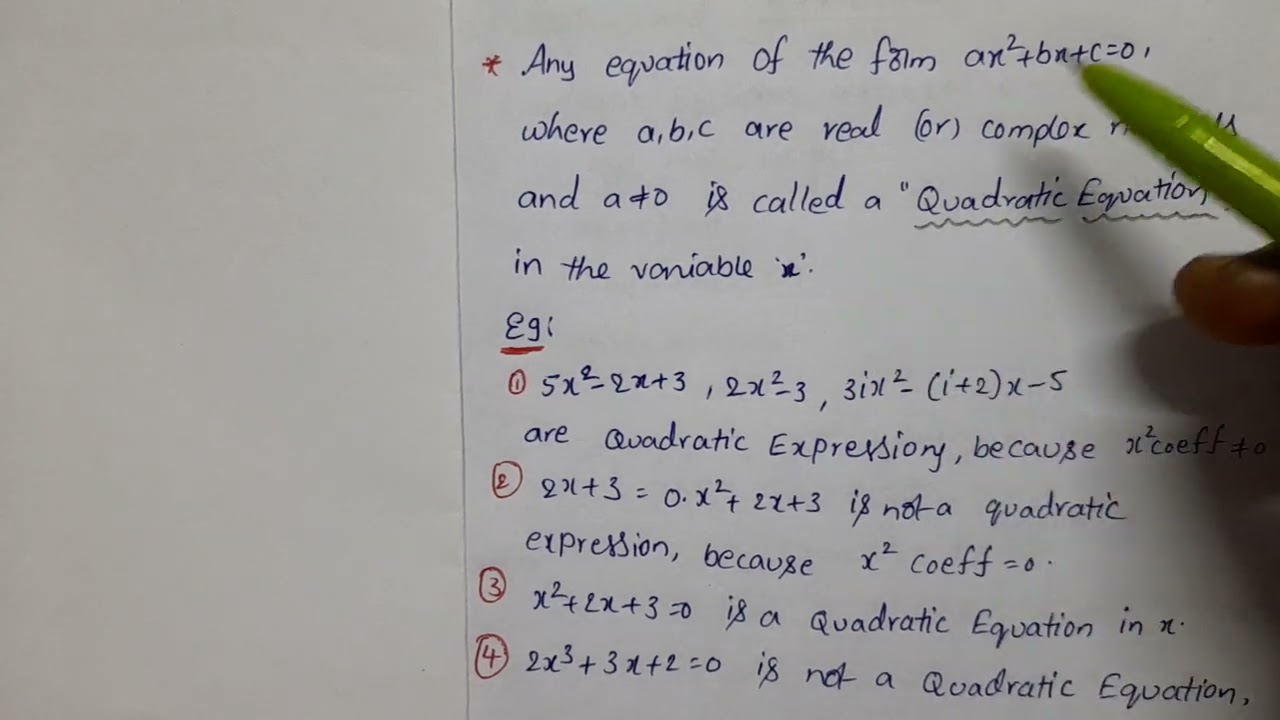 * Any equation of the form ax²+bx+c=0,
where a,b,c are real (or) complex
and a≠0 is called a "Quadratic Equation
in the variable 'x'.
Eg:
① 5x²-2x+3 , 2x²-3 , 3ix²-(i+2)x-5
are Quadratic Expressions, because x²coeff≠0
② 2x+3 = 0.x²+2x+3 is not a quadratic
expression, because x² coeff=0.
③ x²+2x+3=0 is a Quadratic Equation in x.
④ 2x³+3x+2=0 is not a Quadratic Equation,